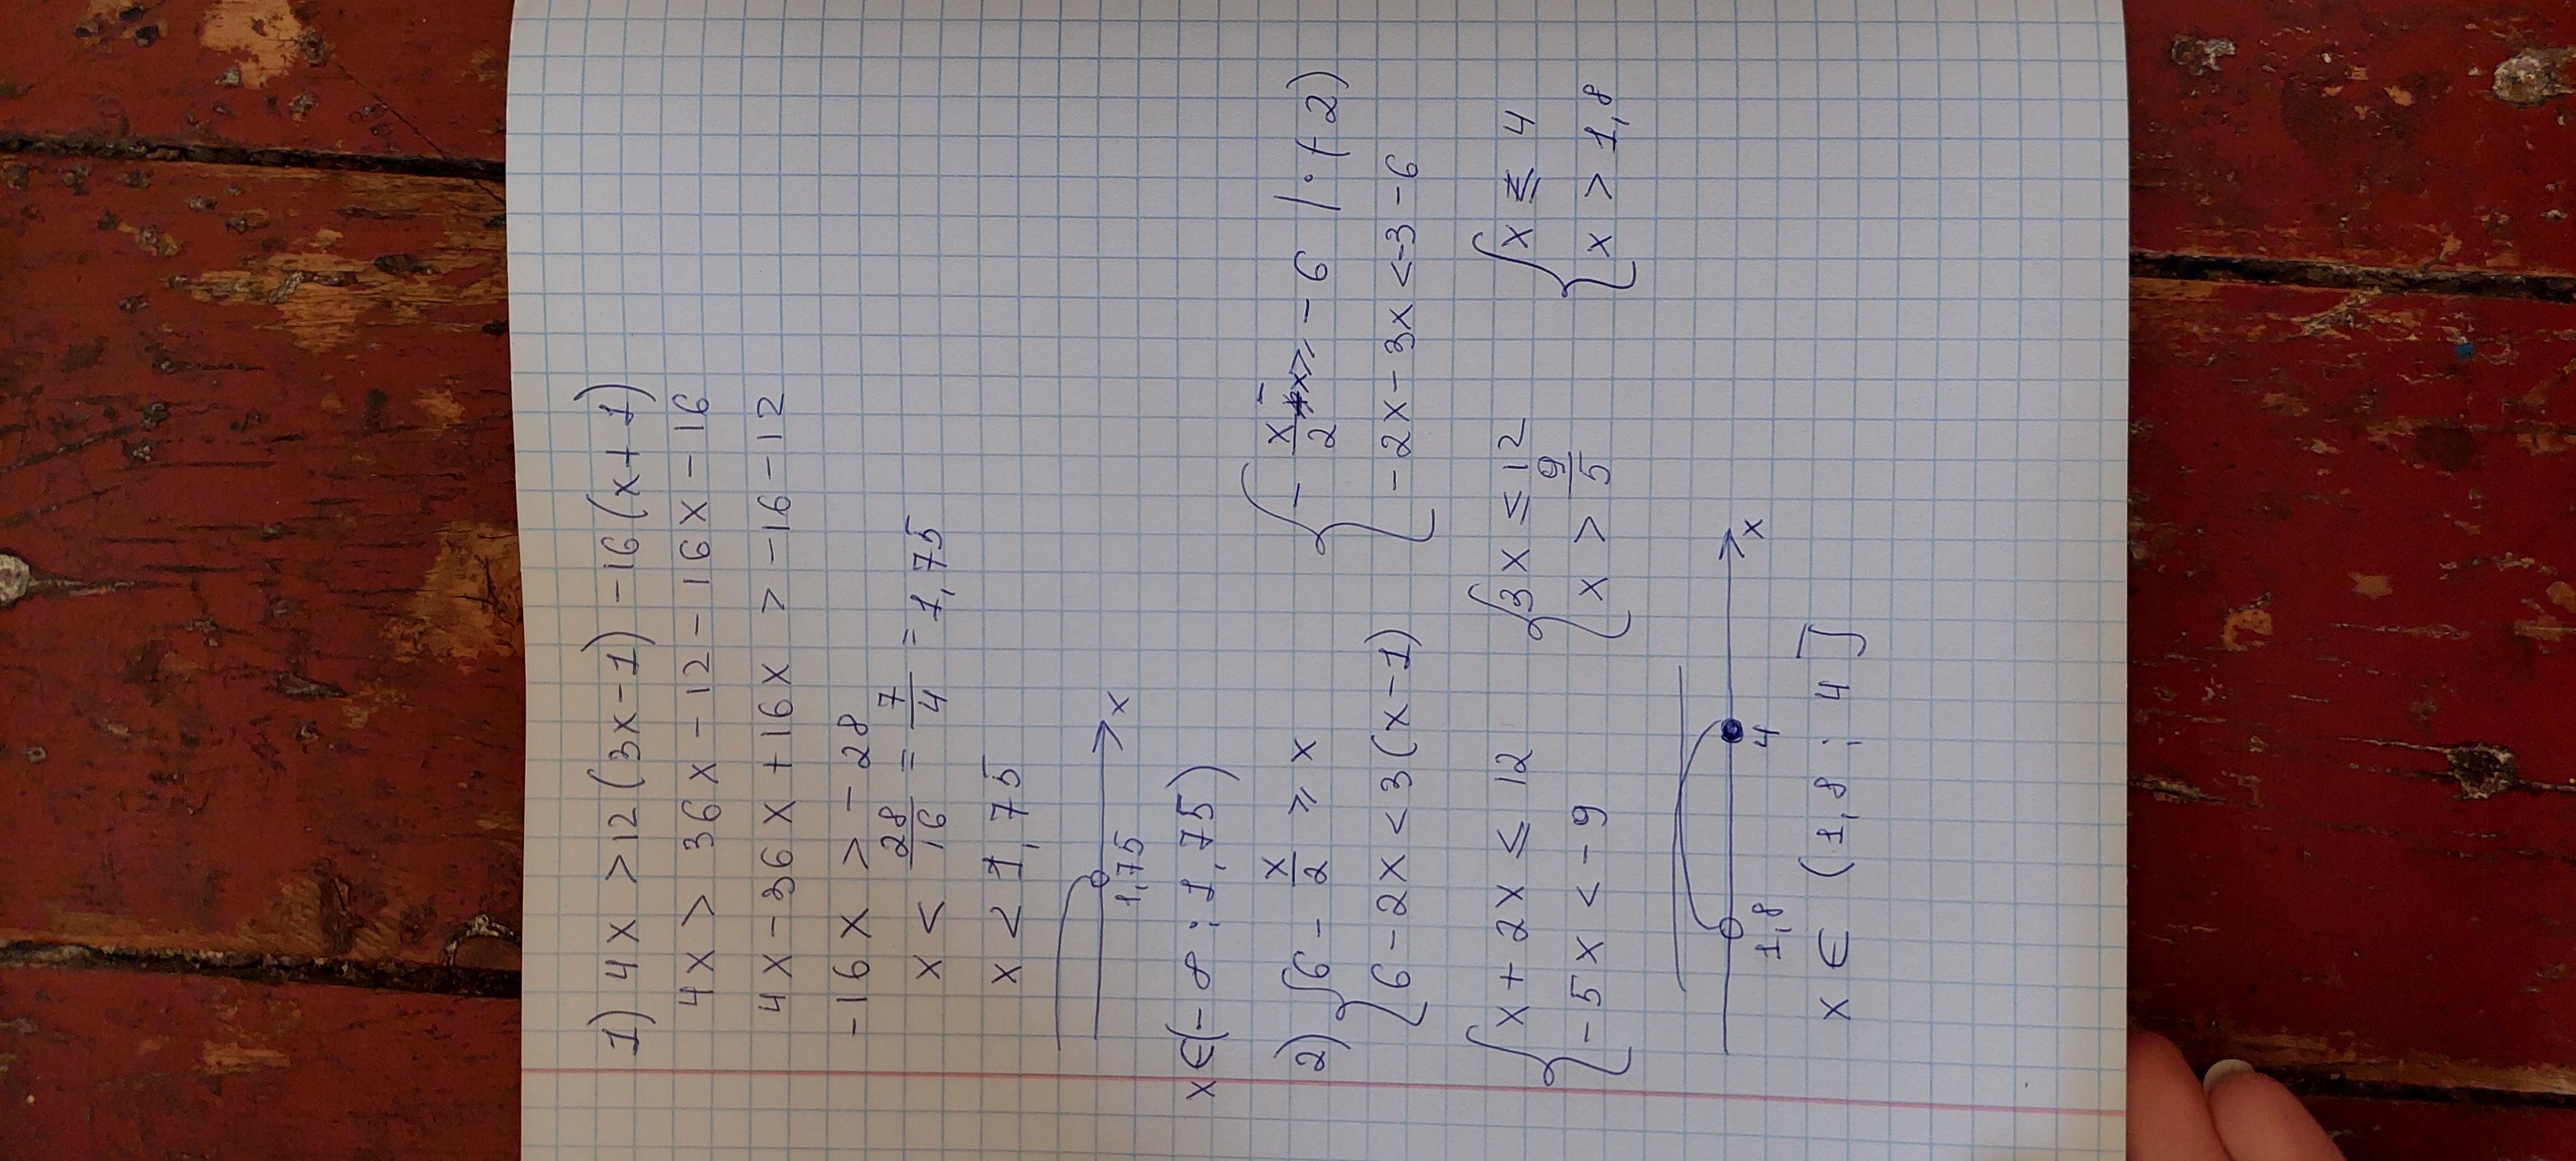 1) 4x > 12(3x-1) -16(x+1)
4x > 36x - 12 - 16x - 16
4x - 36x + 16x > -16 - 12
-16x > -28
x < 28/16 = 7/4 = 1,75
x < 1,75
1,75 x
x ∈ (-∞ ; 1,75)
2) { 6 - x/2 ≥ x { - x/2 - x ≥ -6 | · (-2)
6 - 2x < 3(x-1) -2x - 3x < -3 - 6
{ x + 2x ≤ 12 { 3x ≤ 12 { x ≤ 4
-5x < -9 x > 9/5 x > 1,8
1,8 4 x
x ∈ (1,8 ; 4]